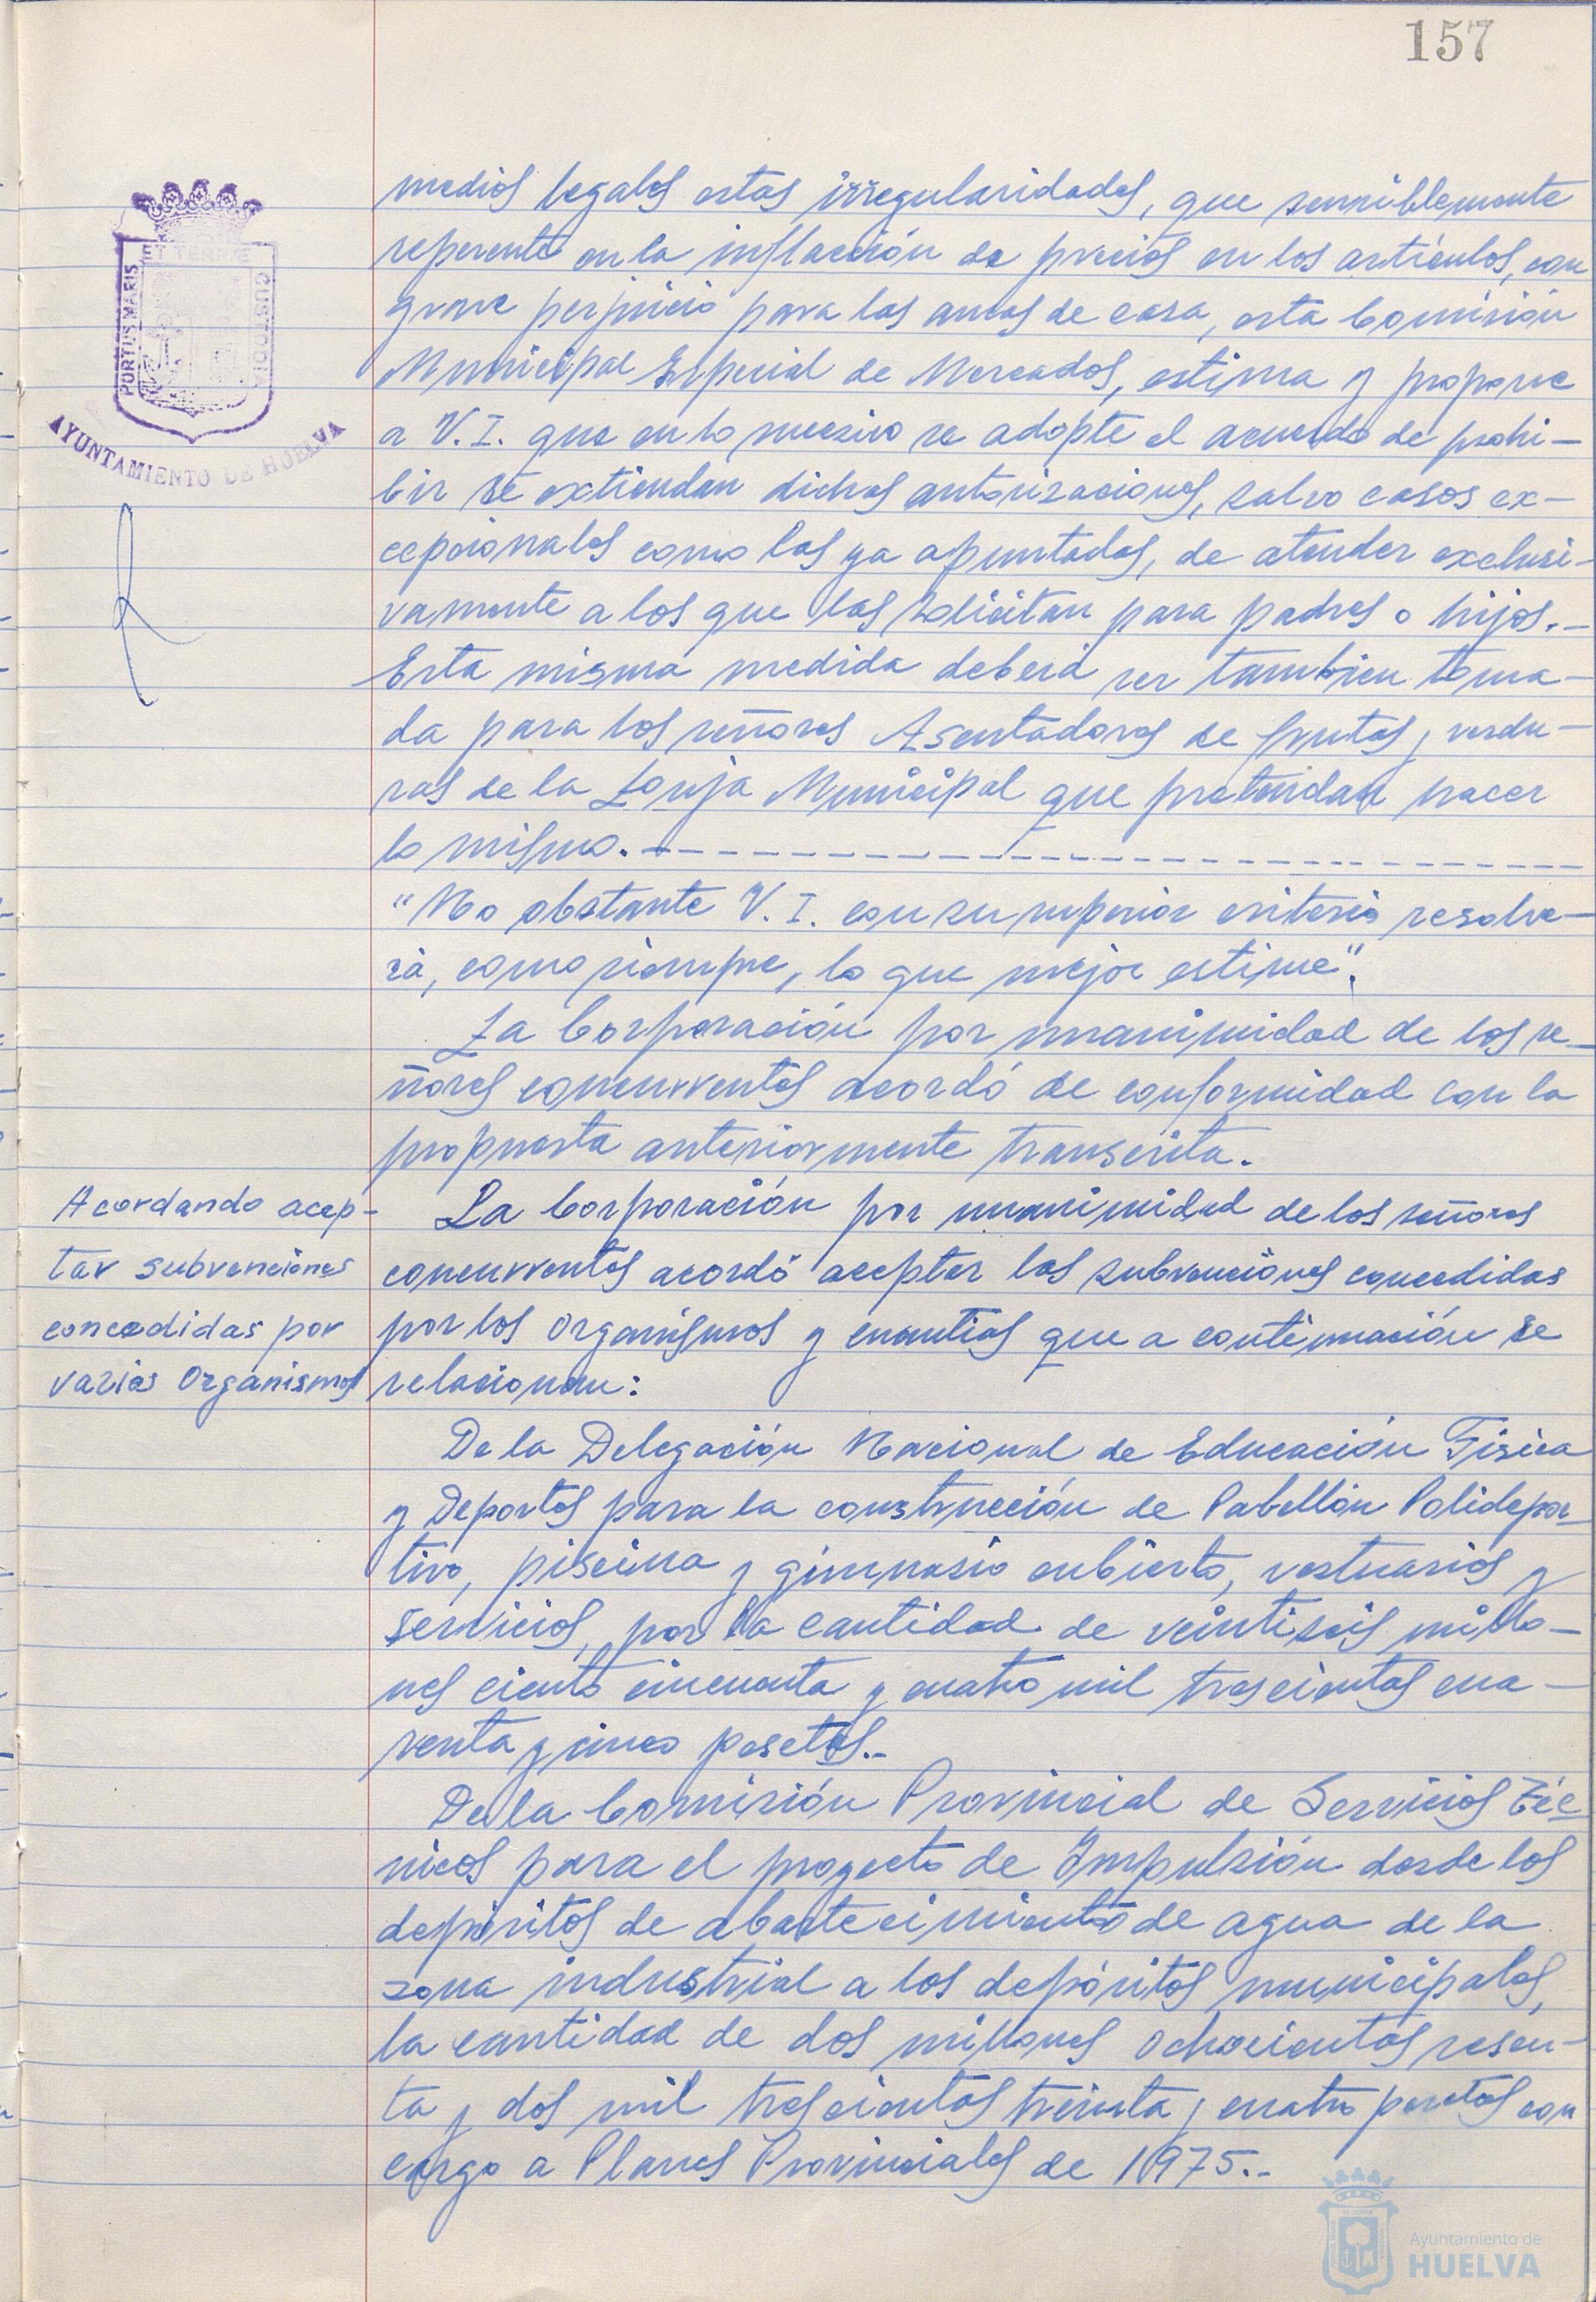 157
PORTUS MARIS
ET TERRÆ
CUSTODIA
AYUNTAMIENTO DE HUELVA
medios legales estas irregularidades, que sensiblemente
repercute en la inflacción de precios en los artículos, con
grave perjuicio para las amas de casa, esta Comisión
Municipal Especial de Mercados, estima y propone
a V.I. que en lo sucesivo se adopte el acuerdo de prohi-
bir se extiendan dichas autorizaciones, salvo casos ex-
cepcionales como las ya apuntadas, de atender exclusi-
vamente a los que las solicitan para padres o hijos.-
Esta misma medida deberá ser tambien toma-
da para los señores Asentadores de frutas y verdu-
ras de la Lonja Municipal que pretendan hacer
lo mismo.-
"No obstante V.I. con su superior criterio resolve-
rá, como siempre, lo que mejor estime".
La Corporación por unanimidad de los se-
ñores concurrentes acordó de conformidad con la
propuesta anteriormente transcrita.
Acordando acep-
tar subvenciones
concedidas por
varios Organismos
La Corporación por unanimidad de los señores
concurrentes acordó aceptar las subvenciones concedidas
por los Organismos y cuantias que a continuación se
relacionan:
De la Delegación Nacional de Educación Fisica
y Deportes para la construcción de Pabellón Polidepor-
tivo, piscina y gimnasio cubierto, vestuarios y
servicios, por la cantidad de veintiseis millo-
nes ciento cincuenta y cuatro mil trescientas cua-
renta y cinco pesetas.-
De la Comisión Provincial de Servicios Téc-
nicos para el proyecto de Impulsión desde los
depósitos de abastecimiento de agua de la
zona industrial a los depósitos municipales,
la cantidad de dos millones ochocientas sesen-
ta y dos mil trescientas treinta y cuatro pesetas con
cargo a Planes Provinciales de 1975.-
Ayuntamiento de
HUELVA